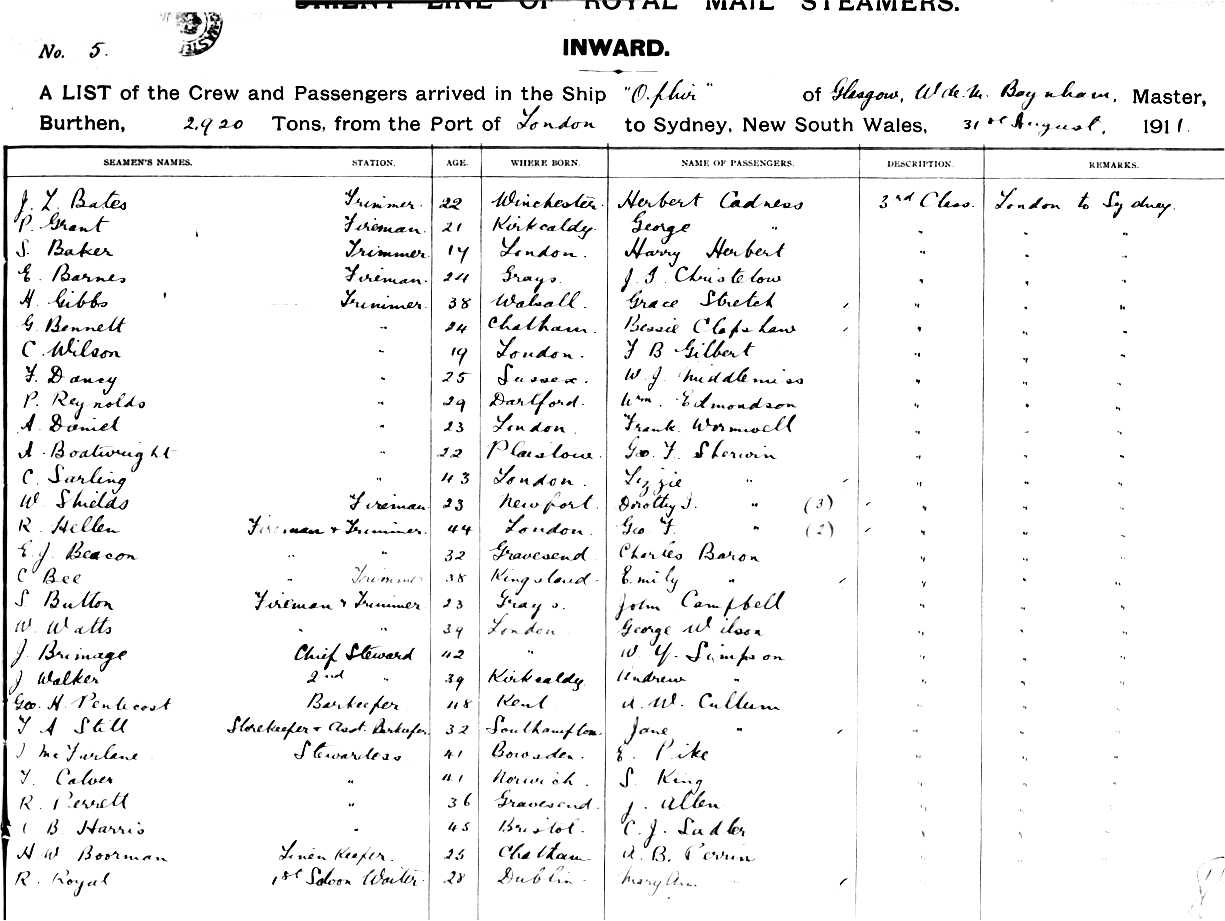 ORIENT LINE OF ROYAL MAIL STEAMERS.
No. 5.
INWARD.
A LIST of the Crew and Passengers arrived in the Ship "Ophir" of Glasgow, Boynham, Master,
Burthen, 2920 Tons, from the Port of London to Sydney, New South Wales, 31st August, 1911.
SEAMEN'S NAMES. STATION. AGE. WHERE BORN. NAME OF PASSENGERS. DESCRIPTION. REMARKS.
J. L. Bates Trimmer. 22 Winchester. Herbert Cadness 3rd Class. London to Sydney.
P. Grant Fireman. 21 Kirkcaldy. George " " " "
S. Baker Trimmer 19 London. Harry Herbert " " "
E. Barnes Fireman. 24 Grays. J. T. Christelow " " "
H. Gibbs Trimmer. 38 Walsall. Grace Stretch " " "
G. Bennett " 24 Chatham. Bessie Clapshaw " " "
C. Wilson " 19 London. F B Gilbert " " "
F. Dancy " 25 Sussex. W J Middlemiss " " "
P. Reynolds " 29 Dartford. Wm. Edmondson " " "
A. Daniel " 23 London. Frank Wormwell " " "
A. Boatwright " 22 Plaistow. Geo. F. Sherwin " " "
C. Sarling " 43 London. Lizzie " " " "
W. Shields Fireman 23 Newport. Dorothy " (3) " " "
R. Hellen Fireman & Trimmer. 44 London. Geo F. " (2) " " "
E. J. Beacon " " 32 Gravesend Charles Baron " " "
C Bee " Trimmer 38 Kingsland. Emily " " " "
S Button Fireman & Trimmer 23 Grays. John Campbell " " "
W. Watts " " 39 London. George Wilson " " "
J. Brimage Chief Steward 42 " W Y. Simpson " " "
J Walker 2nd " 39 Kirkcaldy Andrew " " " "
Geo. H. Pentecost Barkeeper 48 Kent A. W. Cullum " " "
F A Still Storekeeper & Asst. Barkeeper 32 Southampton. Jane " " " "
McFarlane Stewardess 41 Bowsden. E. Pike " " "
F. Calver " 41 Norwich. S. King " " "
R. Perrett " 36 Gravesend. J. Allen " " "
B Harris " 45 Bristol. C. J. Sadler " " "
H W Boorman Linen Keeper. 25 Chatham A. B. Perrin " " "
R. Royal 1st Saloon Waiter. 28 Dublin Mary Ann " " " "